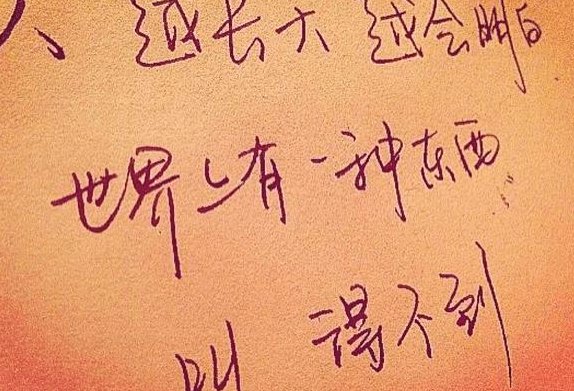 人越长大越会明白
世界上有一种东西
叫得不到